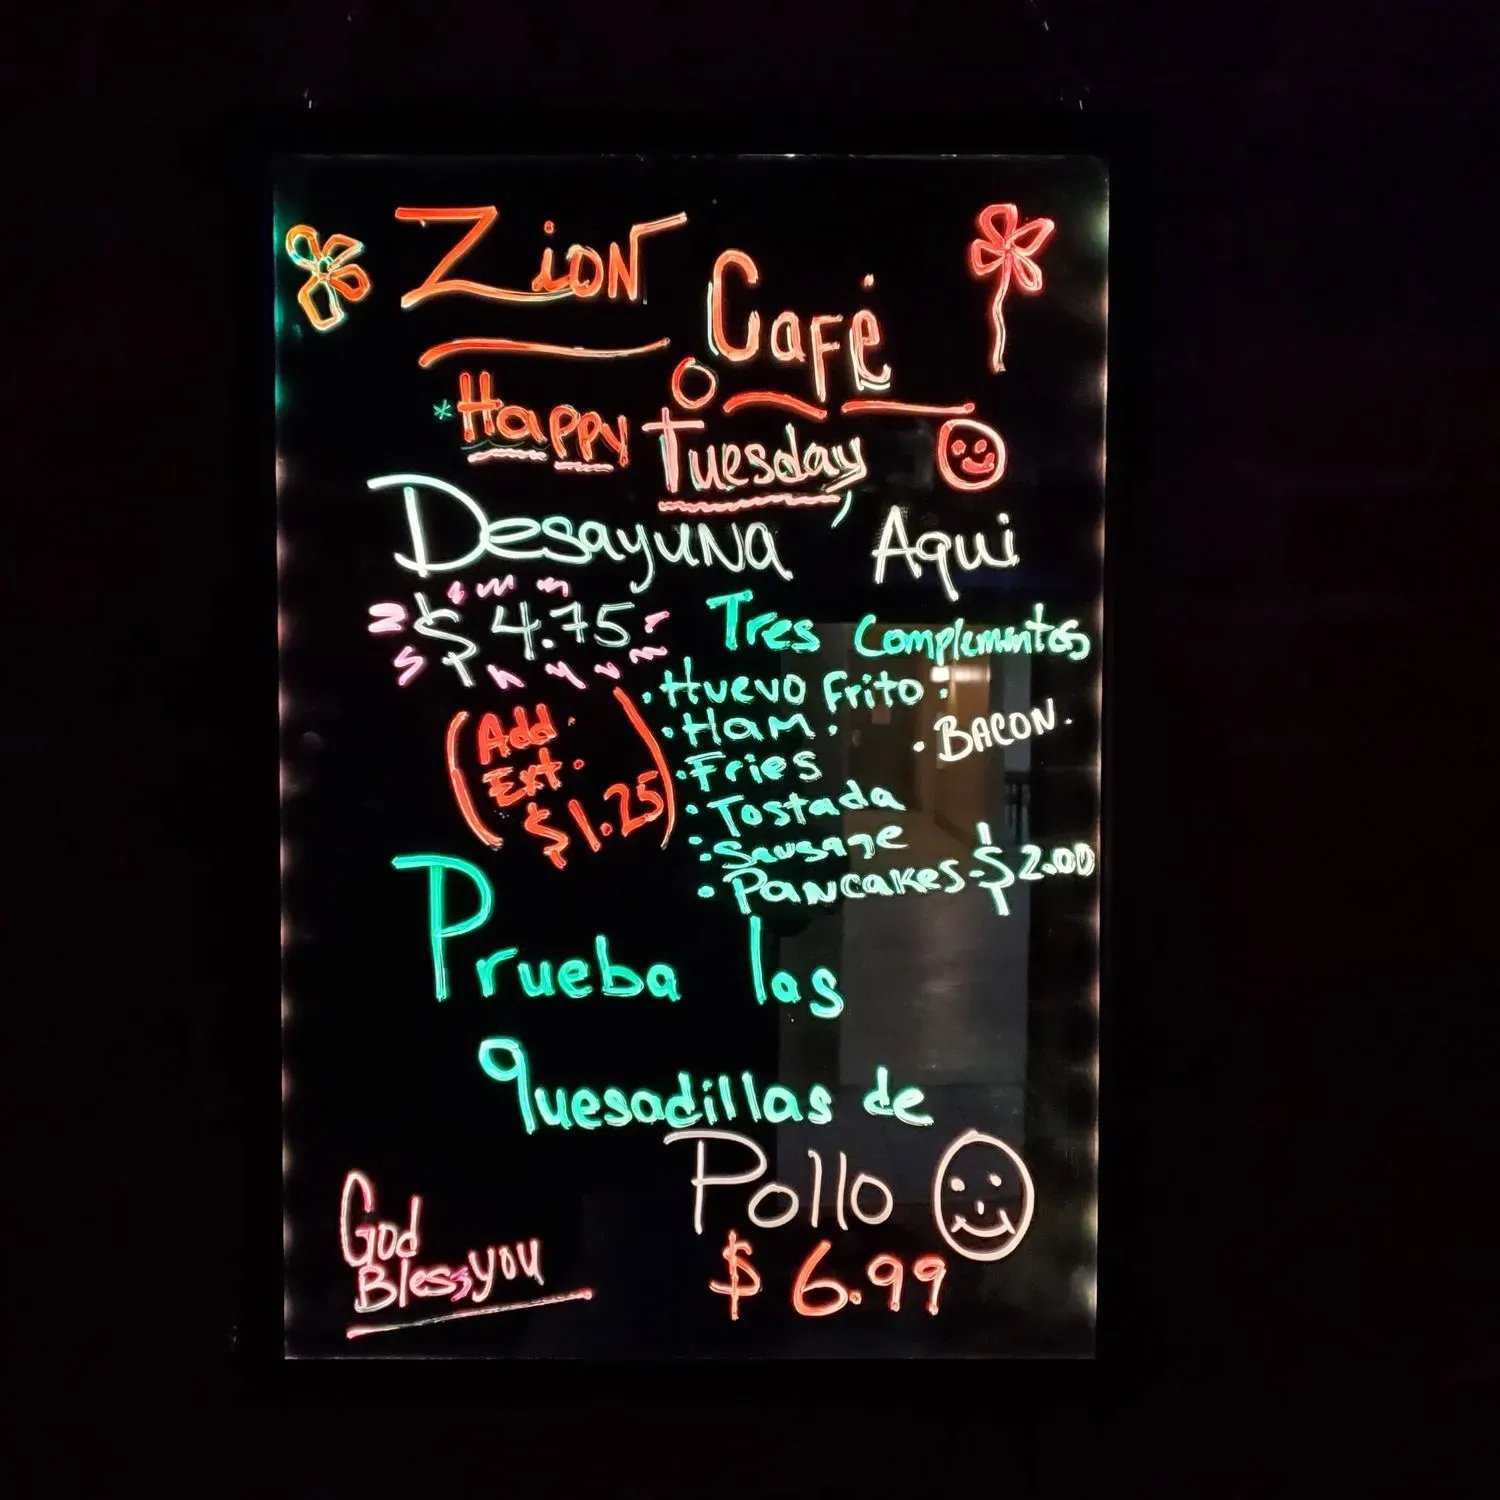 Zion Café
*Happy Tuesday
Desayuna Aqui
$4.75 Tres Complementos
(Add. Ext. $1.25)
· Huevo Frito ·
· Ham · · BACON.
· Fries
· Tostada
· Sausage
· Pancakes - $2.00
Prueba las
quesadillas de
Pollo
$6.99
God
Bless you